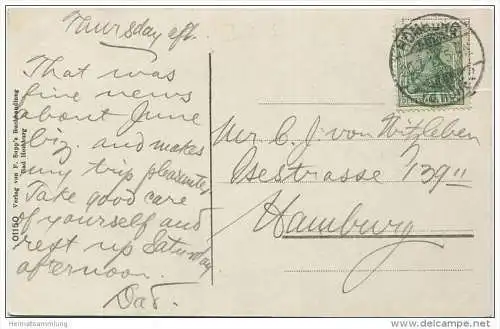 Thursday aft.
That was
fine news
about June
biz. and makes
my trip pleasanter
Take good care
of yourself and
rest up Saturday
afternoon.
Dad.
Mr C. J. von Witzleben
Isestrasse 139 II
Hamburg
01150 Verlag von F. Supp's Buchhandlung
Bad Homburg
HOMBURG
Heimatsammlung
www.delcampe.net